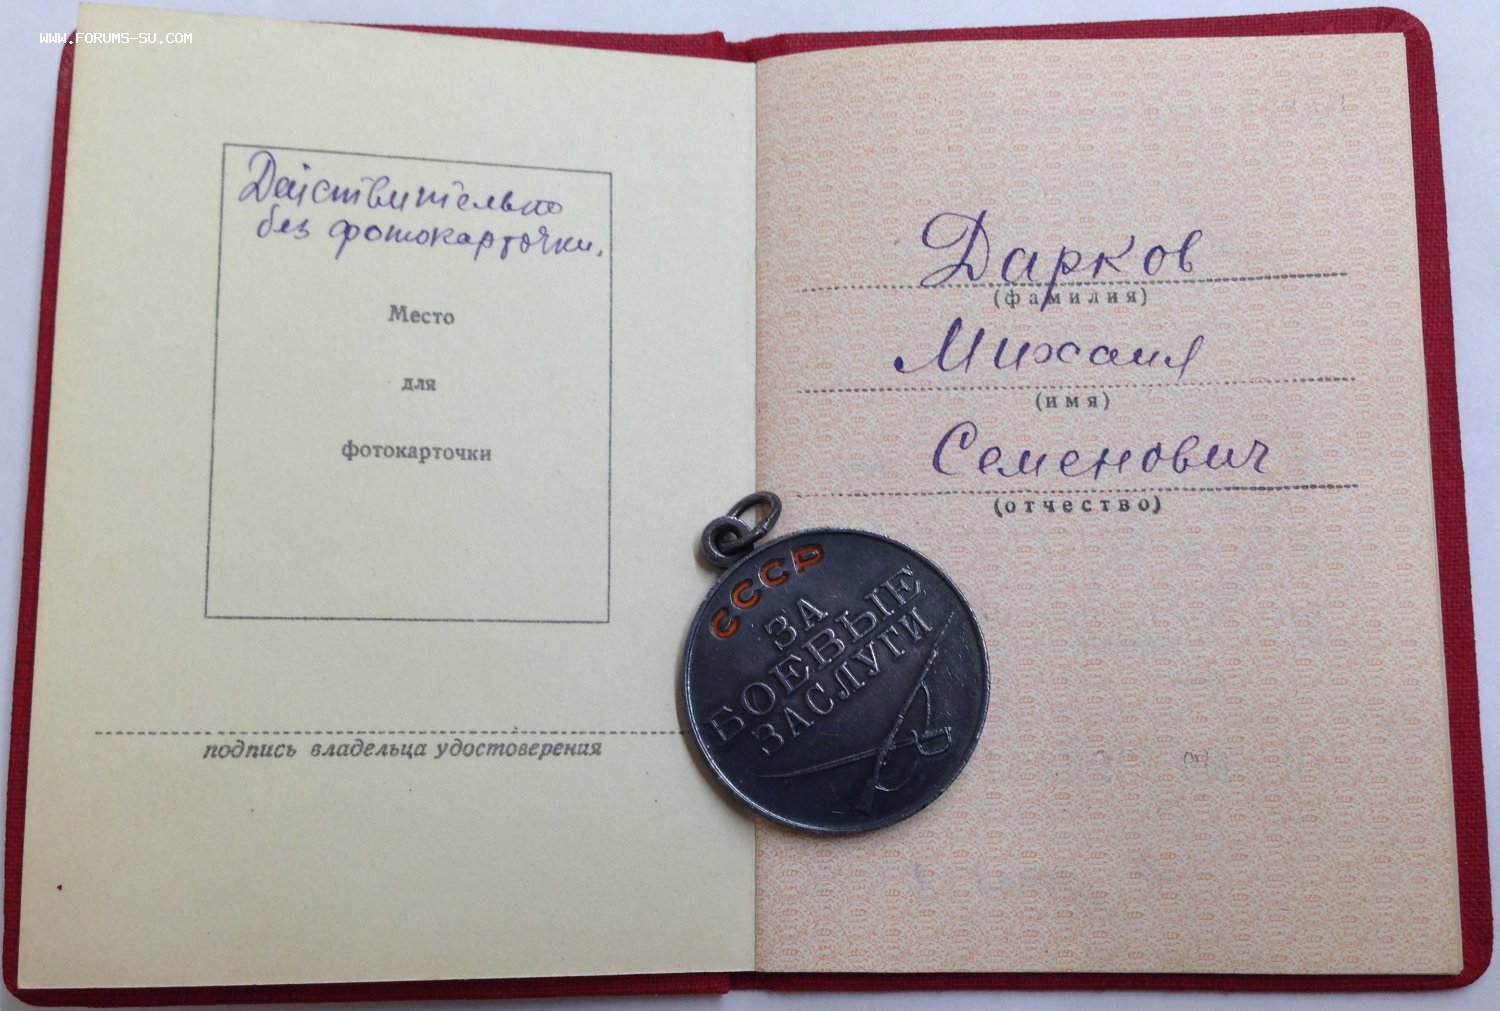 WWW.FORUMS-SU.COM
Действительно
без фотокарточки.
Место
для
фотокарточки
подпись владельца удостоверения
Дарков
(фамилия)
Михаил
(имя)
Семенович
(отчество)
СССР
ЗА
БОЕВЫЕ
ЗАСЛУГИ